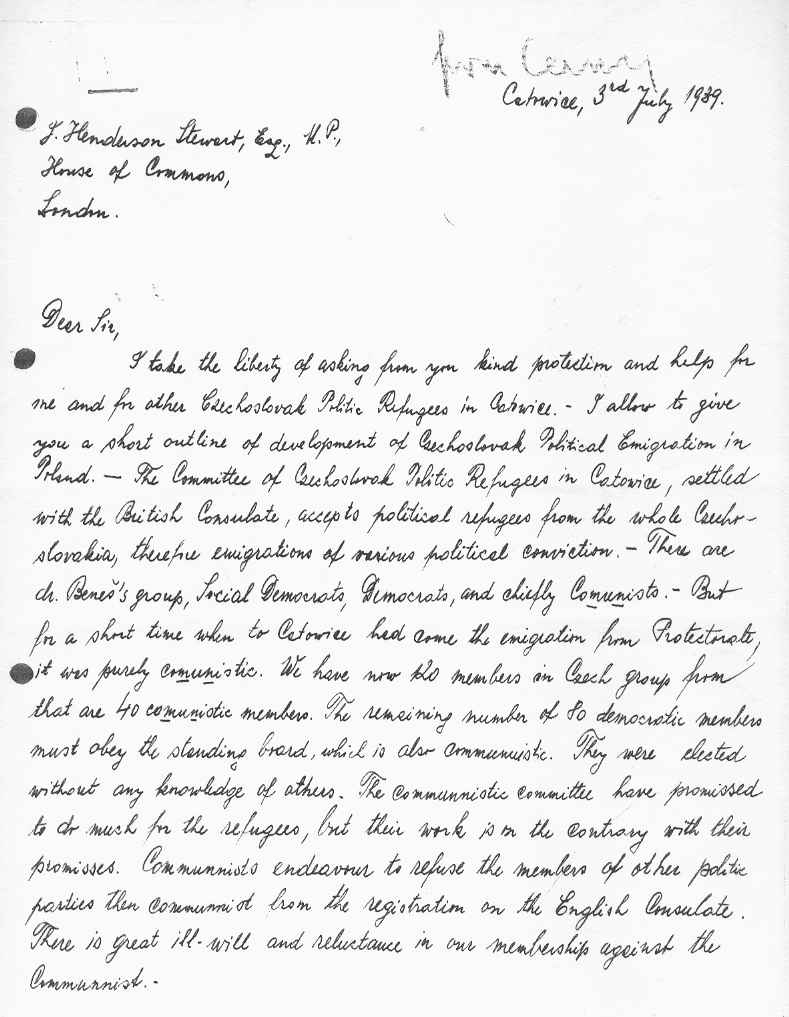 from Cerny
Catowice, 3rd July 1939.
J. Henderson Stewart, Esq., M.P.,
House of Commons,
London.
Dear Sir,
I take the liberty of asking from you kind protection and help for
me and for other Czechoslovak Politic Refugees in Catowice. - I allow to give
you a short outline of development of Czechoslovak Political Emigration in
Poland. — The Committee of Czechoslovak Politic Refugees in Catowice, settled
with the British Consulate, accepts political refugees from the whole Czecho-
slovakia, therefore emigrations of various political conviction. - There are
dr. Beneš's group, Social Democrats, Democrats, and chiefly Comunists. - But
for a short time when to Catowice had come the emigration from Protectorate,
it was purely comunistic. We have now 120 members in Czech group from
that are 40 comunistic members. The remaining number of 80 democratic members
must obey the standing board, which is also communistic. They were elected
without any knowledge of others. The communnistic committee have promissed
to do much for the refugees, but their work is on the contrary with their
promisses. Communnists endeavour to refuse the members of other politic
parties then communnist from the registration on the English Consulate.
There is great ill-will and reluctance in our membership against the
Communnist. -